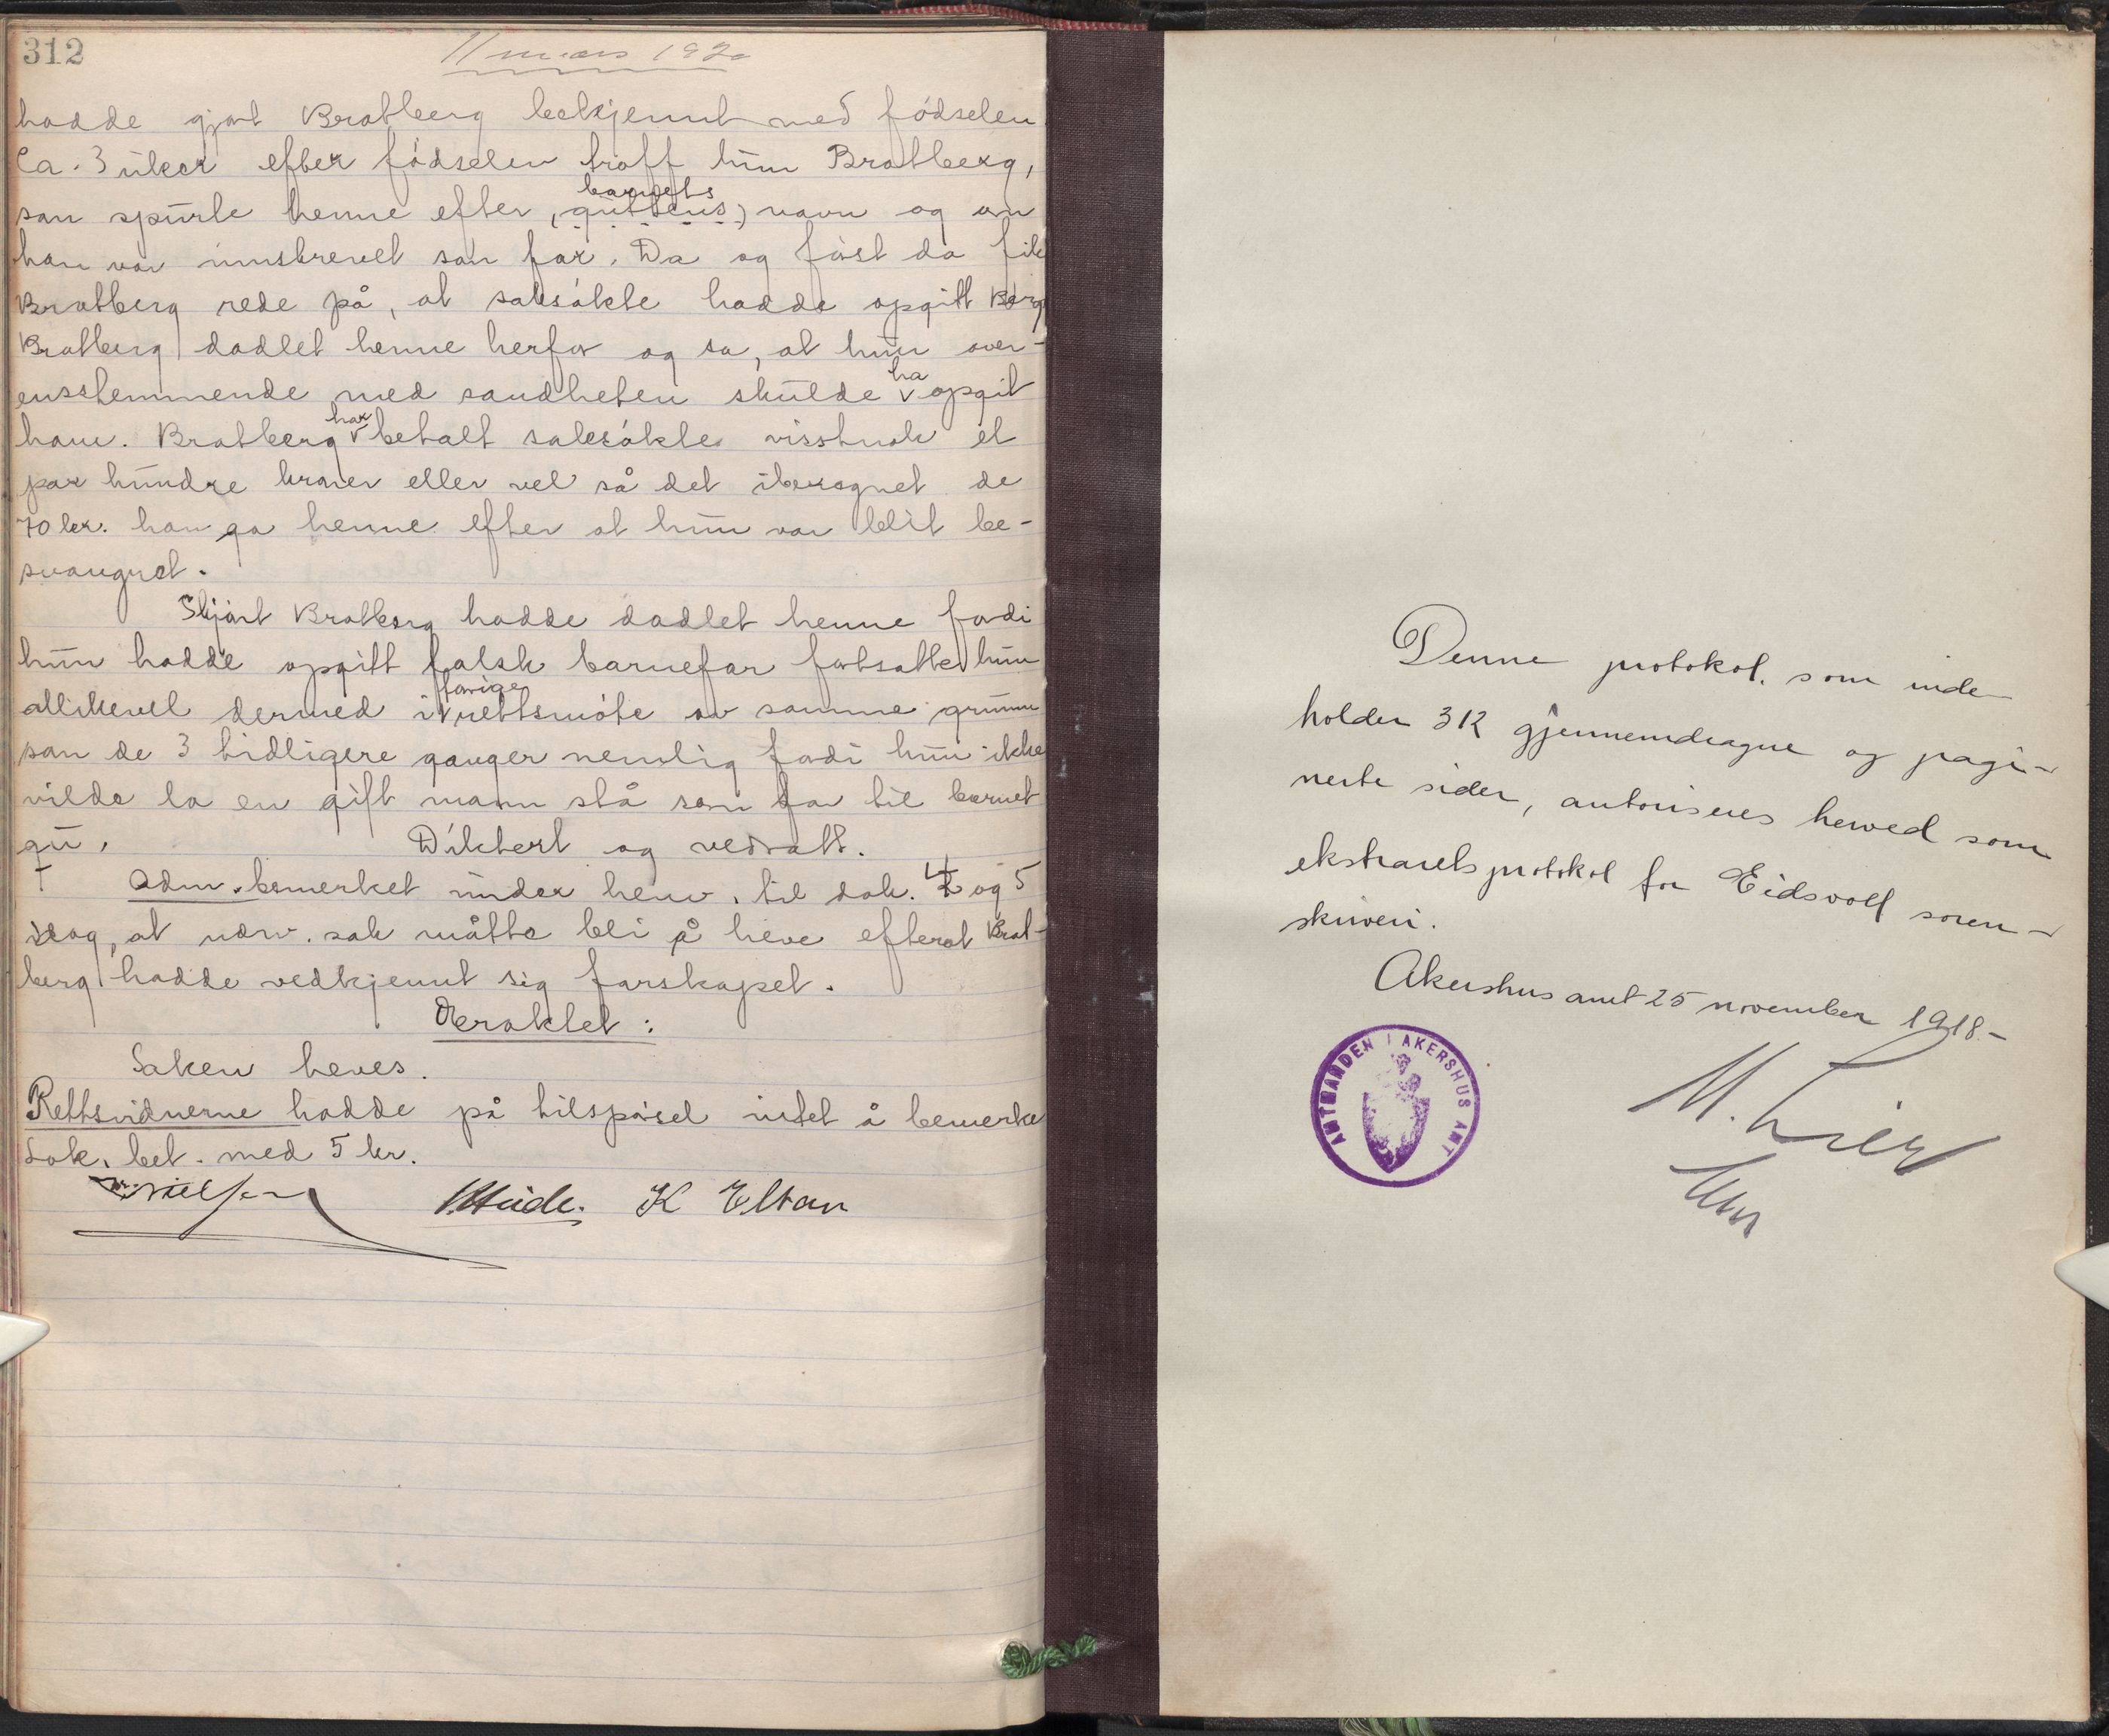 312
11 mars 1920
hadde gjort Bratberg bekjennt med fødselen
Ca. 3 uker efter fødselen traff hun Bratberg,
barnets
som spurte henne efter (guttens) navn og om
han var innskrevet som far. Da og først da fik
Bratberg rede på, at saksøkte hadde opgitt Berg
Bratberg dadlet henne herfor og sa, at hun over-
ha
ensstemmende med sandheten skulde v opgit
har
ham. Bratberg v betalt saksøkte visstnok et
par hundre kroner eller vel så det iberegnet de
70 kr. han ga henne efter at hun var blit be-
svangret.
Skjønt Bratberg hadde dadlet henne fordi
hun hadde opgitt falsk barnefar fortsatte hun
forige
allikevel dermed i v rettsmøte av samme grunn
som de 3 tidligere ganger nemlig fordi hun ikke
vilde la en gift mann stå som far til barnet
Diktert og vedtatt.
Adm. bemerket under henv. til dok. 4 og 5
idag, at nærv. sak måtte bli å heve efterat Brat-
berg hadde vedkjennt sig farskapet.
Avsaktet:
Saken heves.
Rettsvidnerne hadde på tilspørsel intet å bemerke
Lok. bet. med 5 kr.
Nielsen K Eltan
Denne protokol, som inde
holder 312 gjennemdragne og pagi-
nerte sider, autoriseres herved som
ekstraretsprotokol for Eidsvoll soren-
skriveri.
Akershus amt 25 november 1918.-
AMTMANDEN I AKERSHUS AMT